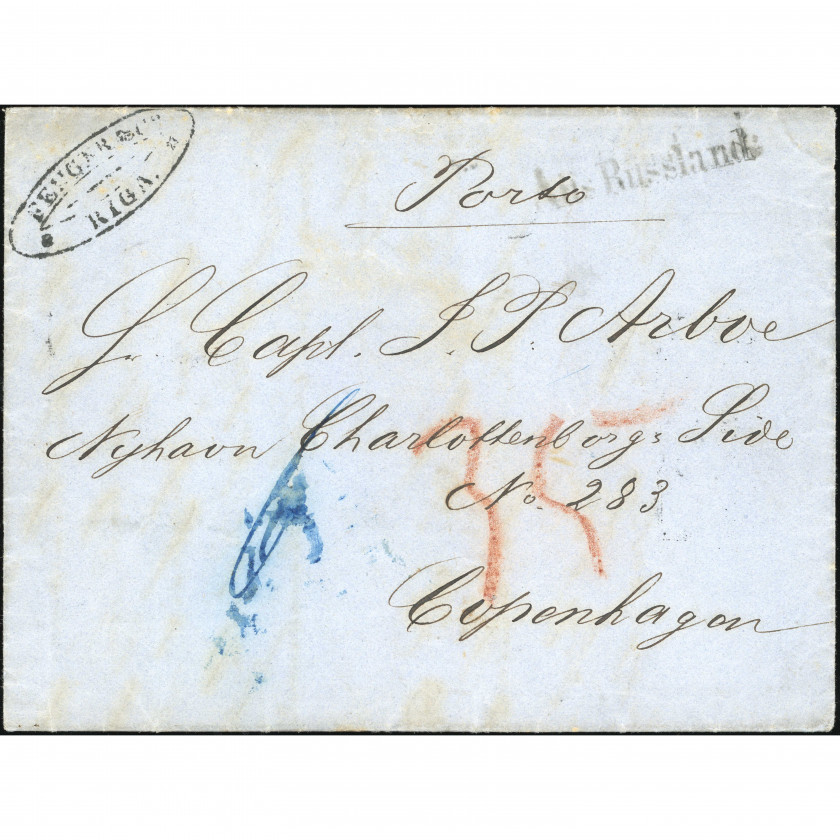 FENGER & Co.
RIGA.
Aus Russland
Porto
Hr. Capt. J. P. Arboe
Nyhavn Charlottenborgs Side
No. 283
Copenhagen
35
6